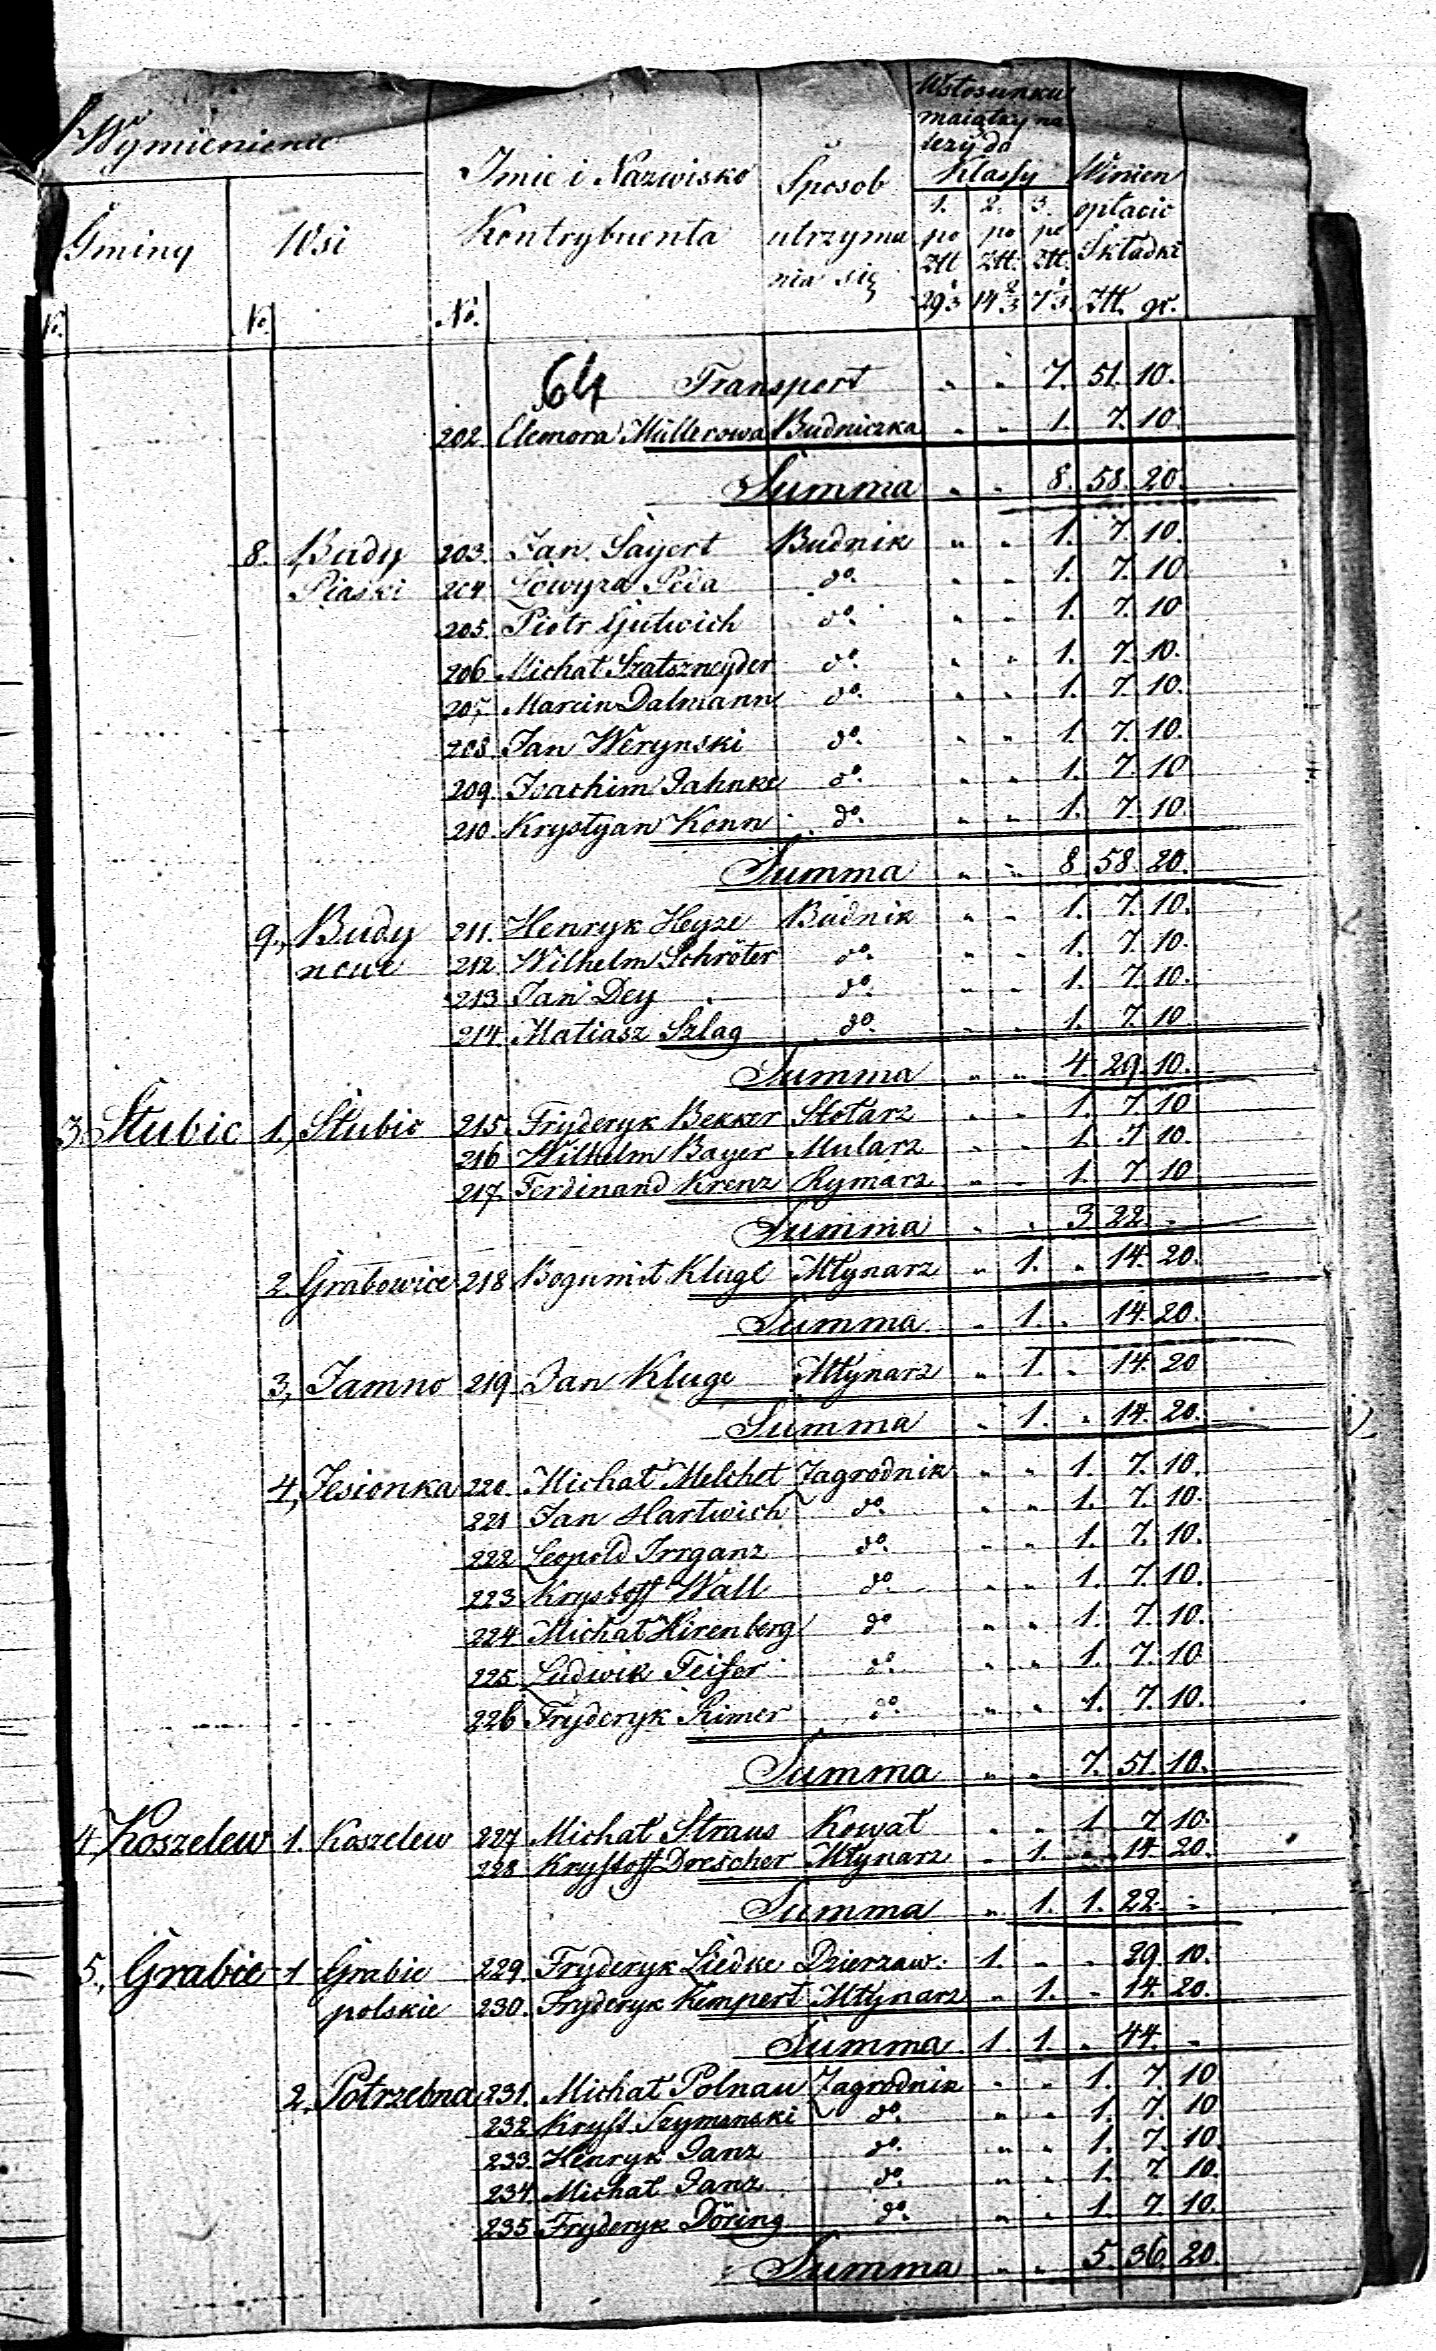 Wymienienie
Gminy Wsi
Imie i Nazwisko Kontrybuenta
Sposob utrzymania się
W stosunku maiątku należy do Klassy
1. 2. 3.
po po po
Złł Złł. Złł.
29⅓ 14⅔ 7⅓
Winien opłacić Składki
Złł. gr.
N. No. No.
64 Transport " " 7. 51. 10.
202. Eleonora Müllerowa Budniczka " " 1. 7. 10.
Summa " " 8. 58. 20.
8. Budy 203. Jan Sayert Budnik " " 1. 7. 10.
Piaski 204. Lowyza Peda do. " " 1. 7. 10
205. Piotr Gutwich do. " " 1. 7. 10
206. Michał Szatszneyder do. " " 1. 7. 10.
207. Marcin Dalmann do. " " 1. 7. 10.
208. Jan Werynski do. " " 1. 7. 10.
209. Joachim Jahnke do. " " 1. 7. 10
210. Krystyan Konn do. " " 1. 7. 10.
Summa " " 8 58. 20.
9., Budy 211. Henryk Heyze Budnik " " 1. 7. 10.
nowe 212. Wilhelm Schröter do. " " 1. 7. 10.
213. Jan Dey do. " " 1. 7. 10.
214. Matiasz Szlag do. " " 1. 7. 10.
Summa " " 4. 29. 10.
3. Słubic 1., Słubic 215. Fryderyk Bekker Stolarz " " 1. 7. 10
216 Wilhelm Bayer Mularz " " 1. 7 10.
217. Ferdinand Krenz Rymarz " " 1. 7. 10
Summa " " 3 22. "
2. Grabowice 218 Bogumił Kluge Młynarz " 1. " 14. 20.
Summa " 1. " 14. 20.
3, Jamno 219. Jan Kluge Młynarz " 1. " 14. 20
Summa " 1. " 14. 20.
4, Jesionka 220. Michał Melchet Zagrodnik " " 1. 7. 10.
221 Jan Hartwich do. " " 1. 7. 10.
222 Leopold Irrganz do. " " 1. 7. 10.
223 Krystoff Wall do. " " 1. 7. 10.
224 Michał Hirenberg do " " 1. 7. 10.
225 Ludwik Feifer do. " " 1. 7. 10
226 Fryderyk Rimer do. " " 1. 7. 10.
Summa " " 7. 51. 10.
4, Koszelew 1. Koszelew 227 Michał Straus Kowal " " 1 7 10.
228 Krystoff Drescher Młynarz " 1. " 14. 20.
Summa " 1. 1. 22. "
5., Grabie 1 Grabie 229. Fryderyk Liedke Dzierzaw. 1. " " 29. 10.
polskie 230. Fryderyk Kempert Młynarz " 1. " 14. 20.
Summa 1. 1. " 44. "
2. Potrzebna 231. Michał Polnau Zagrodnik " " 1. 7. 10
232 Kryst. Szymanski do. " " 1. 7. 10
233. Henryk Janz do. " " 1. 7. 10.
234 Michał Janz do. " " 1. 7. 10.
235 Fryderyk Döring do. " " 1. 7. 10.
Summa " " 5. 36. 20.